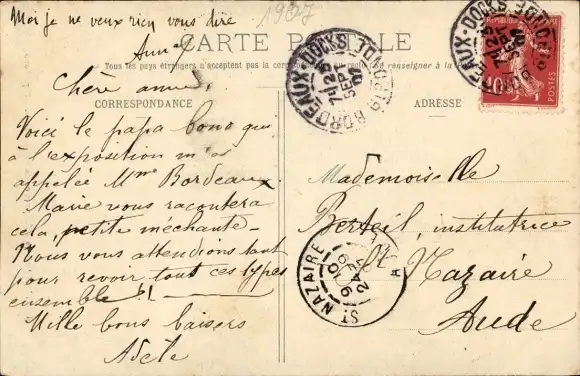 Moi je ne veux rien vous dire
Anna
1907
CARTE POSTALE
Tous les pays étrangers n'acceptent pas la correspondance au se renseigner à la
CORRESPONDANCE
ADRESSE
BORDEAUX-DOCKS
7H 25
SEPT
07
GIRONDE
BORDEAUX-DOCKS
GIRONDE
10
POSTES
Chère amie,
Voici le papa bono qui
à l'exposition m'a
appelée Mme Bordeaux.
Marie vous racontera
cela, petite méchante.
Nous vous attendions tant
pour revoir tout ces types
ensemble !!
Mille bons baisers
Adèle
Mademoiselle
Berteil, institutrice
St Nazaire
Aude
ST NAZAIRE